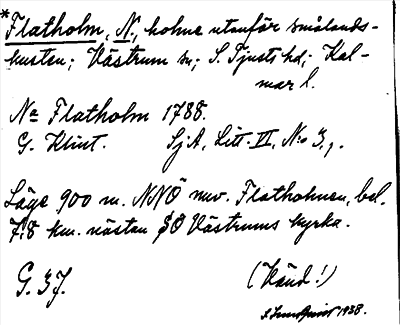 *Flatholm, N., holme utanför smålands-
kusten; Västrum sn; S. Tjusts hd; Kal-
mar l.
Na Flatholm 1788.
G. Klint. SjA, Litt. VI, No 3,.
Läge 900 m. NNÖ nuv. Flatholmen, bel.
7.8 km. nästan SO Västrums kyrka.
G. 3J.
(Vänd!)
S. Lundqvist 1938.